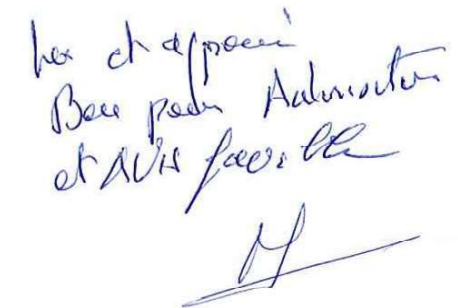 Lu et approuvé
Bon pour Autorisation
et Avis favorable